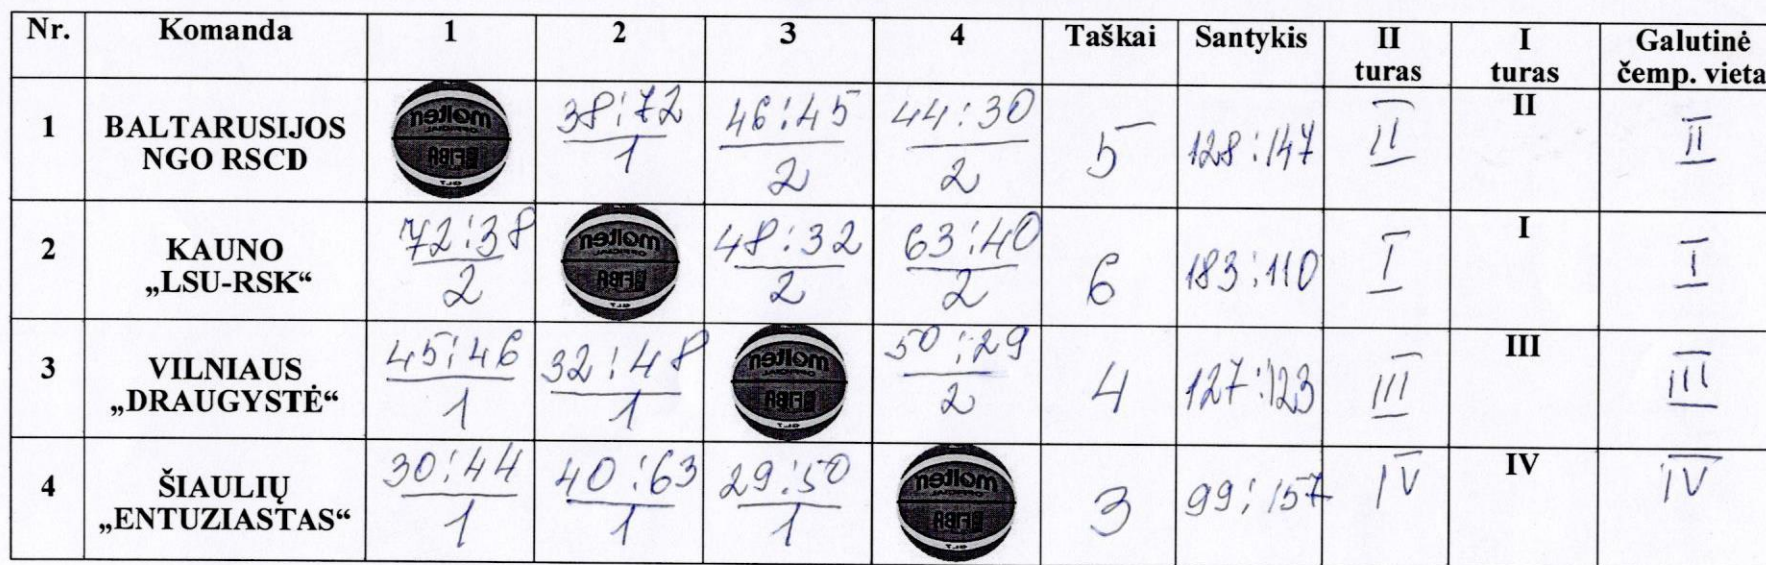 Nr. Komanda 1 2 3 4 Taškai Santykis II turas I turas Galutinė čemp. vieta
1 BALTARUSIJOS NGO RSCD molten OFFICIAL FIBA 38:72 1 46:45 2 44:30 2 5 128:147 II II II
2 KAUNO „LSU-RSK“ 72:38 2 molten OFFICIAL FIBA 48:32 2 63:40 2 6 183:110 I I I
3 VILNIAUS „DRAUGYSTĖ“ 45:46 1 32:48 1 molten OFFICIAL FIBA 50:29 2 4 127:123 III III III
4 ŠIAULIŲ „ENTUZIASTAS“ 30:44 1 40:63 1 29:50 1 molten OFFICIAL FIBA 3 99:157 IV IV IV